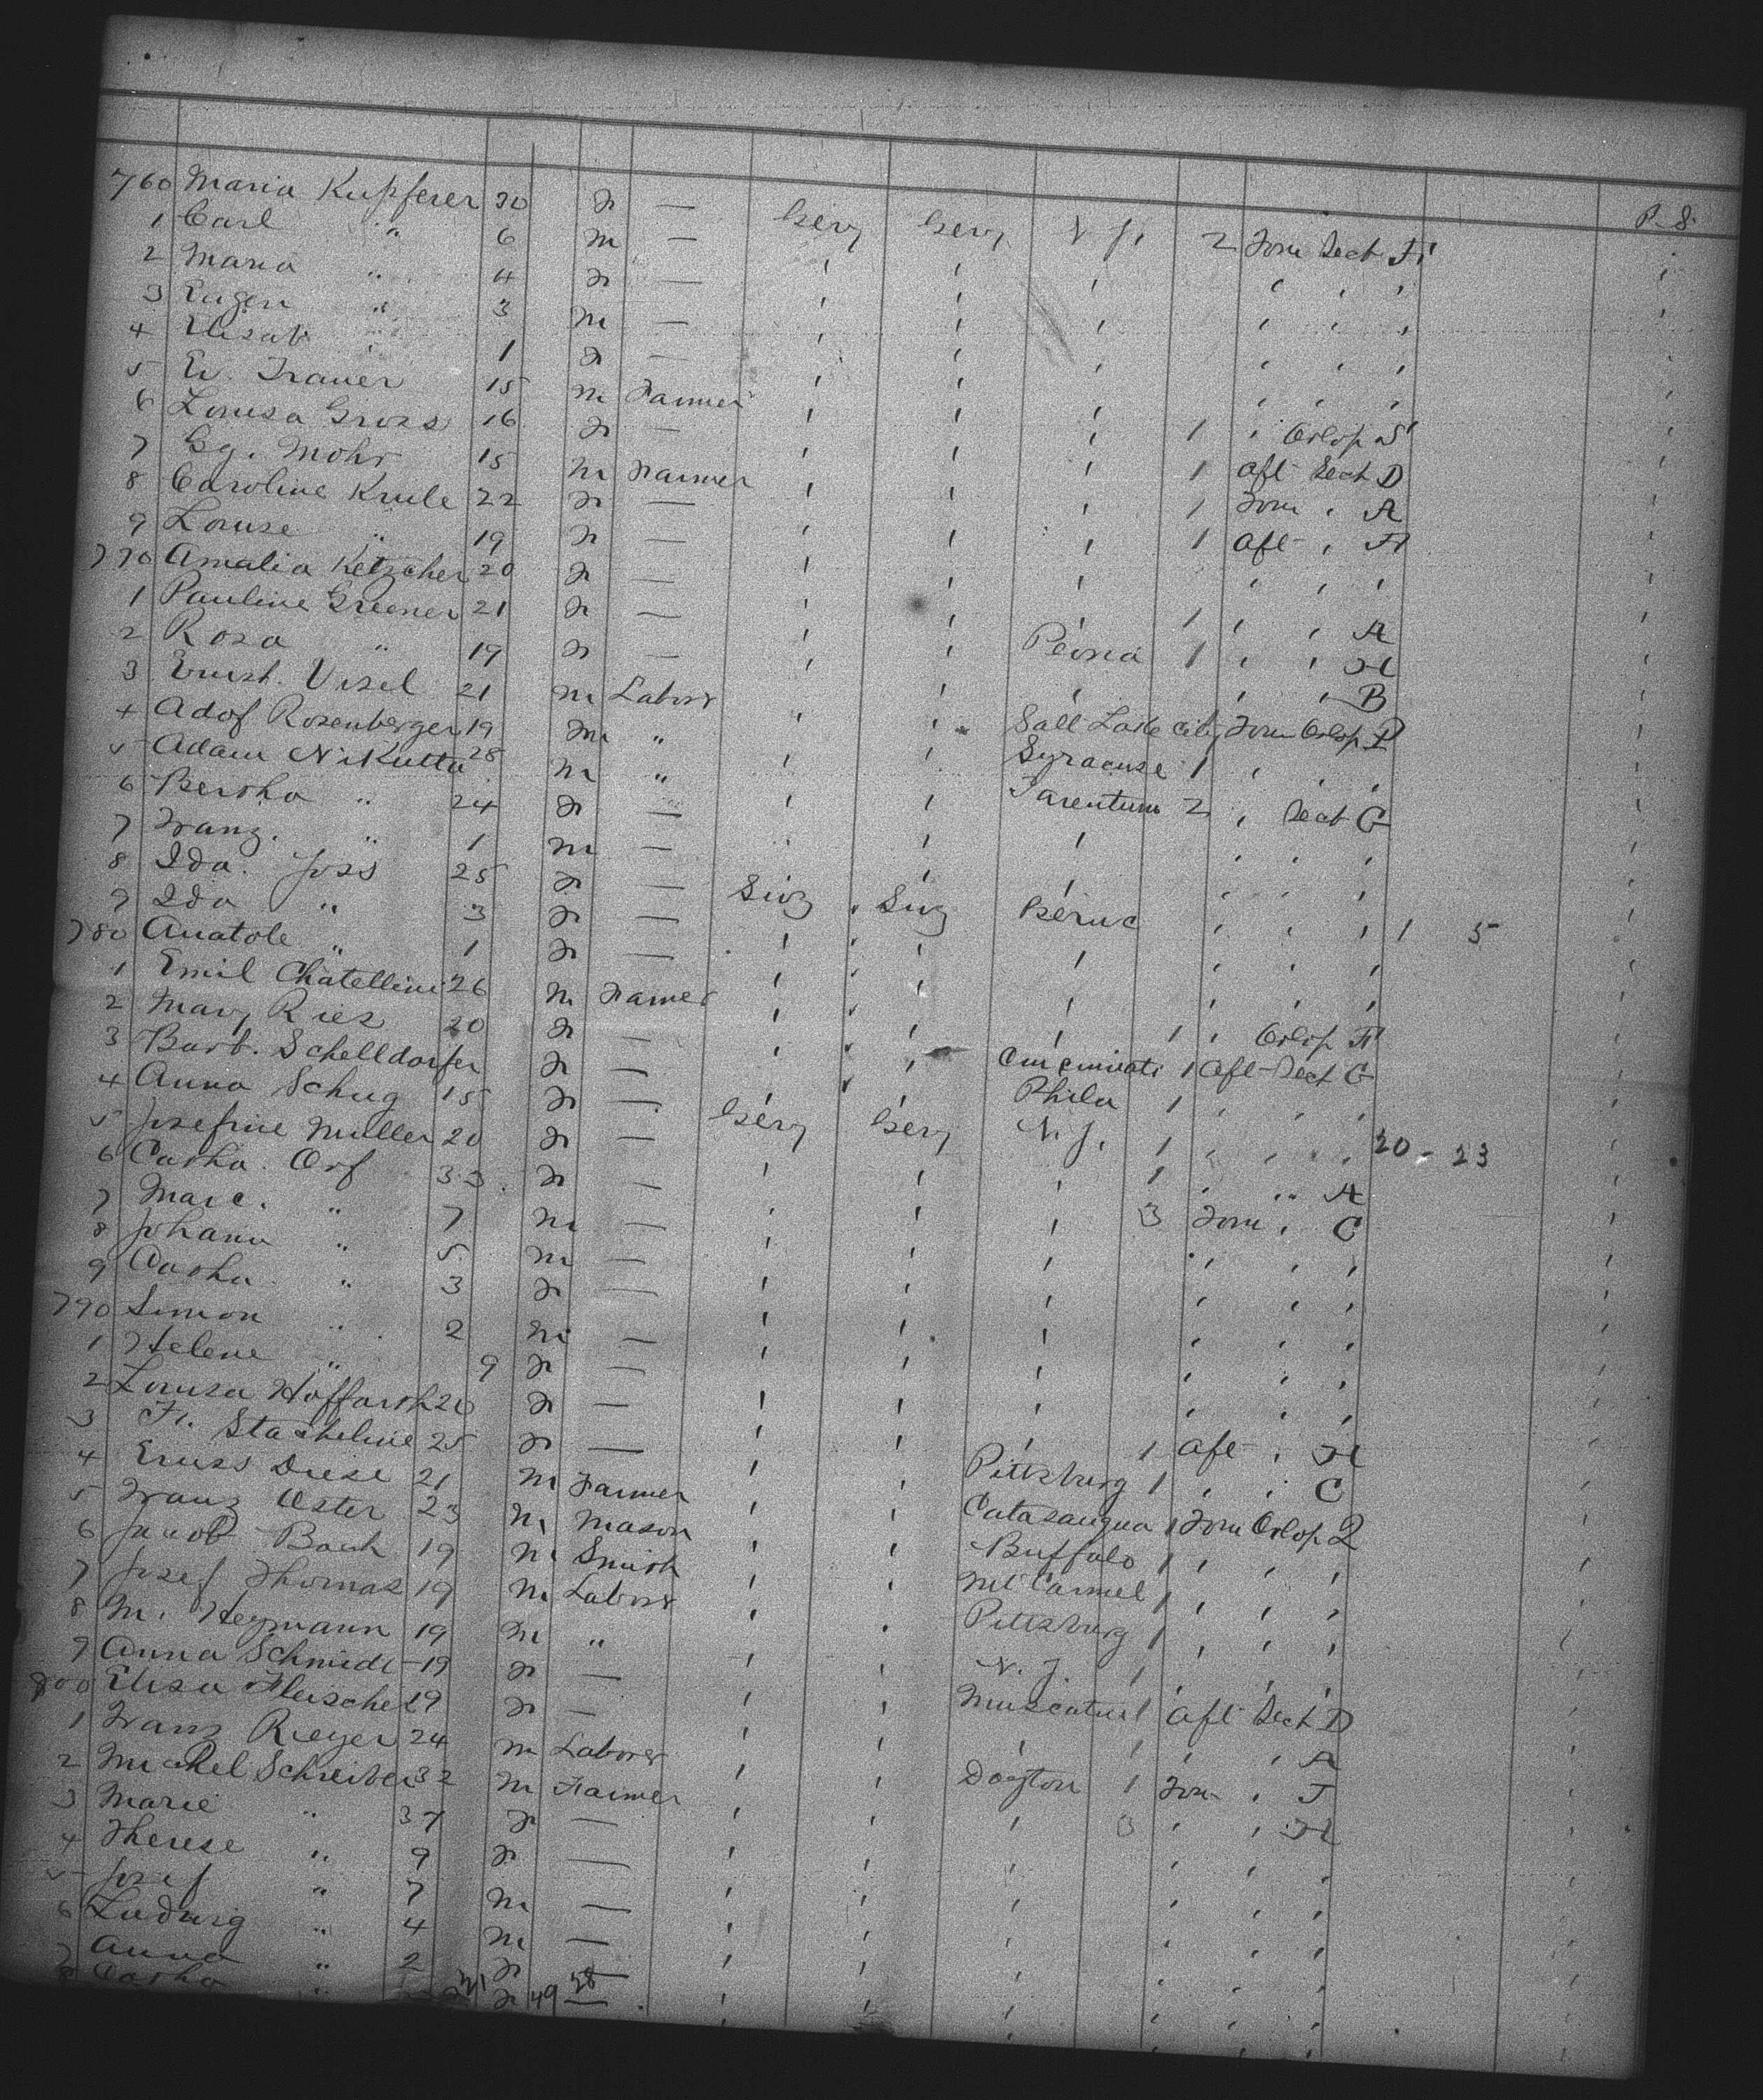 P. S.
760 Maria Kupferer 30 F — Gery Gery N. J. 2 Forw Sect H
1 Carl " 6 M — ' ' ' ' ' ' '
2 Maria " 4 F — ' ' ' ' ' ' '
3 Eugen " 3 M — ' ' ' ' ' ' '
4 Elisab " 1 F — ' ' ' ' ' ' '
5 Ev. Trauer 15 M Farmer ' ' ' 1 ' Orlop S '
6 Louisa Gross 16 F — ' ' ' 1 Aft Sect D '
7 Gg. Mohr 15 M Farmer ' ' ' 1 Forw ' A '
8 Caroline Krule 22 F — ' ' ' 1 Aft ' H '
9 Louise " 19 F — ' ' ' ' ' ' '
770 Amalia Ketzcher 20 F — ' ' ' 1 ' ' A '
1 Pauline Greener 21 F — ' ' Peoria 1 ' ' H '
2 Rosa " 19 F — ' ' ' ' ' B '
3 Ernst. Visel 21 M Labors ' ' Salt Lake City Forw Orlop P '
4 Adof Rosenberger 19 M " ' ' Syracuse 1 ' ' ' '
5 Adam Nikutta 28 M " ' ' Tarentum 2 ' Sect G '
6 Bertha " 24 F — ' ' ' ' ' ' '
7 Franz. " 1 M — ' ' ' ' ' ' '
8 Ida. Joss 25 F — Swz Swz Berne ' ' ' 1 5 '
9 Ida " 3 F — ' ' ' ' ' ' '
780 Anatole " 1 F — ' ' ' ' ' ' '
1 Emil Chatellini 26 M Farmer ' ' ' 1 ' Orlop H '
2 Mary Ries 20 F — ' ' Cincinnati 1 Aft Sect G '
3 Barb. Schelldorfer F — ' ' Phila 1 ' ' ' '
4 Anna Schug 15 F — Gery Gery N. J. 1 ' ' ' 20 - 23 '
5 Josefine Muller 20 F — ' ' ' 1 ' " A '
6 Catha. Orf 33 F — ' ' ' 3 Forw ' C '
7 Marc. " 7 M — ' ' ' ' ' ' '
8 Johann " 5 M — ' ' ' ' ' ' '
9 Catha. " 3 F — ' ' ' ' ' ' '
790 Simon " 2 M — ' ' ' ' ' ' '
1 Helene " 9 F — ' ' ' ' ' ' '
2 Louisa Hoffarth 20 F — ' ' ' 1 Aft ' H '
3 Fr. Stacheline 25 F — ' ' Pittsburg 1 ' ' C '
4 Ernss Diese 21 M Farmer ' ' Catasauqua 1 Forw Orlop 2 '
5 Franz Oster 23 M Mason ' ' Buffalo 1 ' ' ' '
6 Jacob Bach 19 M Smith ' ' Mt Carmel 1 ' ' ' '
7 Josef Thomas 19 M Labors ' ' Pittsburg 1 ' ' ' '
8 M. Heymann 19 M " ' ' N. J. 1 ' ' ' '
9 Anna Schmidt 19 F — ' ' Muscatine 1 Aft Sect D '
800 Elisa Fleischer 19 F — ' ' ' 1 ' ' A '
1 Franz Rieger 24 M Laborer ' ' Dayton 1 Forw ' J '
2 Michel Schreiber 32 M Farmer ' ' ' 3 ' ' H '
3 Marie " 37 F — ' ' ' ' ' ' '
4 Therese " 9 F — ' ' ' ' ' ' '
5 Josef " 7 M — ' ' ' ' ' ' '
6 Ludwig " 4 M — ' ' ' ' ' ' '
7 Anna " 2 F — ' ' ' ' ' ' '
8 Catha " F — ' ' ' ' ' ' '
21 49 28